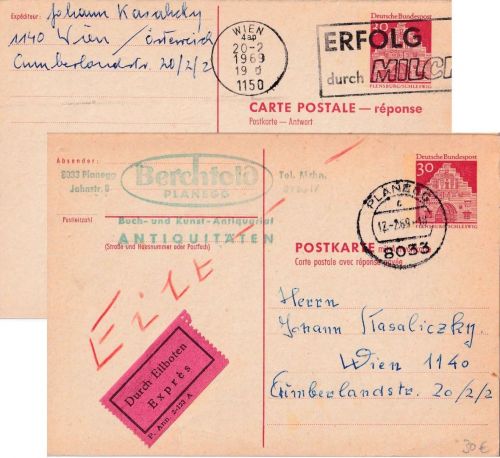 Expéditeur: Johann Kasalicky
1140 Wien / Österreich
Cumberlandstr. 20/2/2
WIEN
20-2
1969
19
1150
ERFOLG
durch MILCH
Deutsche Bundespost
30
FLENSBURG/SCHLESWIG
CARTE POSTALE — réponse
Postkarte - Antwort
Absender:
8033 Planegg
Jahnstr. 8
Berchtold
PLANEGG
Tel. Mchn.
Postleitzahl
Buch- und Kunst-Antiquariat
ANTIQUITÄTEN
(Straße und Hausnummer oder Postfach)
Deutsche Bundespost
30
FLENSBURG/SCHLESWIG
PLANEGG
c
12.-2.69.-
8033
POSTKARTE
Carte postale avec réponse payée
Eilt
Durch Eilboten
Exprès
P. Ann 2-123 A
Herrn
Johann Kasaliczky
Wien 1140
Cumberlandstr. 20/2/2
30 €